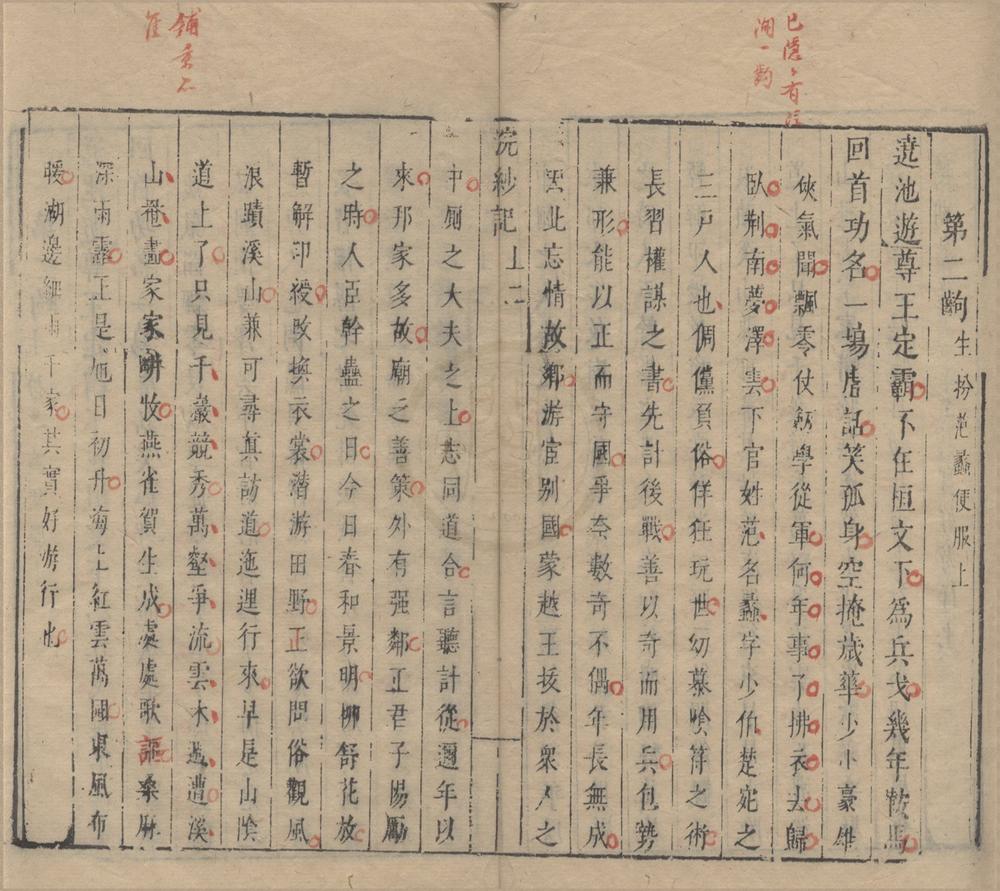 已隱隱有
湖一夢
第二齣 生扮范蠡便服上
遶池遊尊王定霸不在恒文下為兵戈幾年鞍馬
回首功名一場虛話笑孤身空掩歲華少小豪雄
俠氣聞飄零仗劒學從軍何年事了拂衣去歸
臥荆南夢澤雲下官姓范名蠡字少伯楚宛之
三戸人也倜儻負俗佯狂玩世幼慕陰符之術
長習權謀之書先計後戰善以奇而用兵包勢
兼形能以正而守國爭奈數奇不偶年長無成
因此忘情故鄉游宦别國蒙越王拔於衆人之
浣紗記 上 二
中厠之大夫之上志同道合言聽計從邇年以
來邦家多故廟乏善策外有强鄰正君子惕厲
之時人臣幹蠱之日今日春和景明柳舒花放
暫解印綬改換衣裳潜游田野正欲問俗觀風
浪蹟溪山兼可尋眞訪道迤逦行來早是山陰
道上了只見千巖競秀萬壑爭流雲木遶遭溪
山罨畫家家畊牧燕雀賀生成處處歌謳桑麻
深雨露正是旭日初升海上紅雲萬國東風布
暖湖邊細雨千家其實好游行也
鋪排不